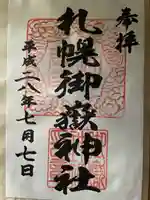 奉拝
札幌御嶽神社
平成二八年七月七日